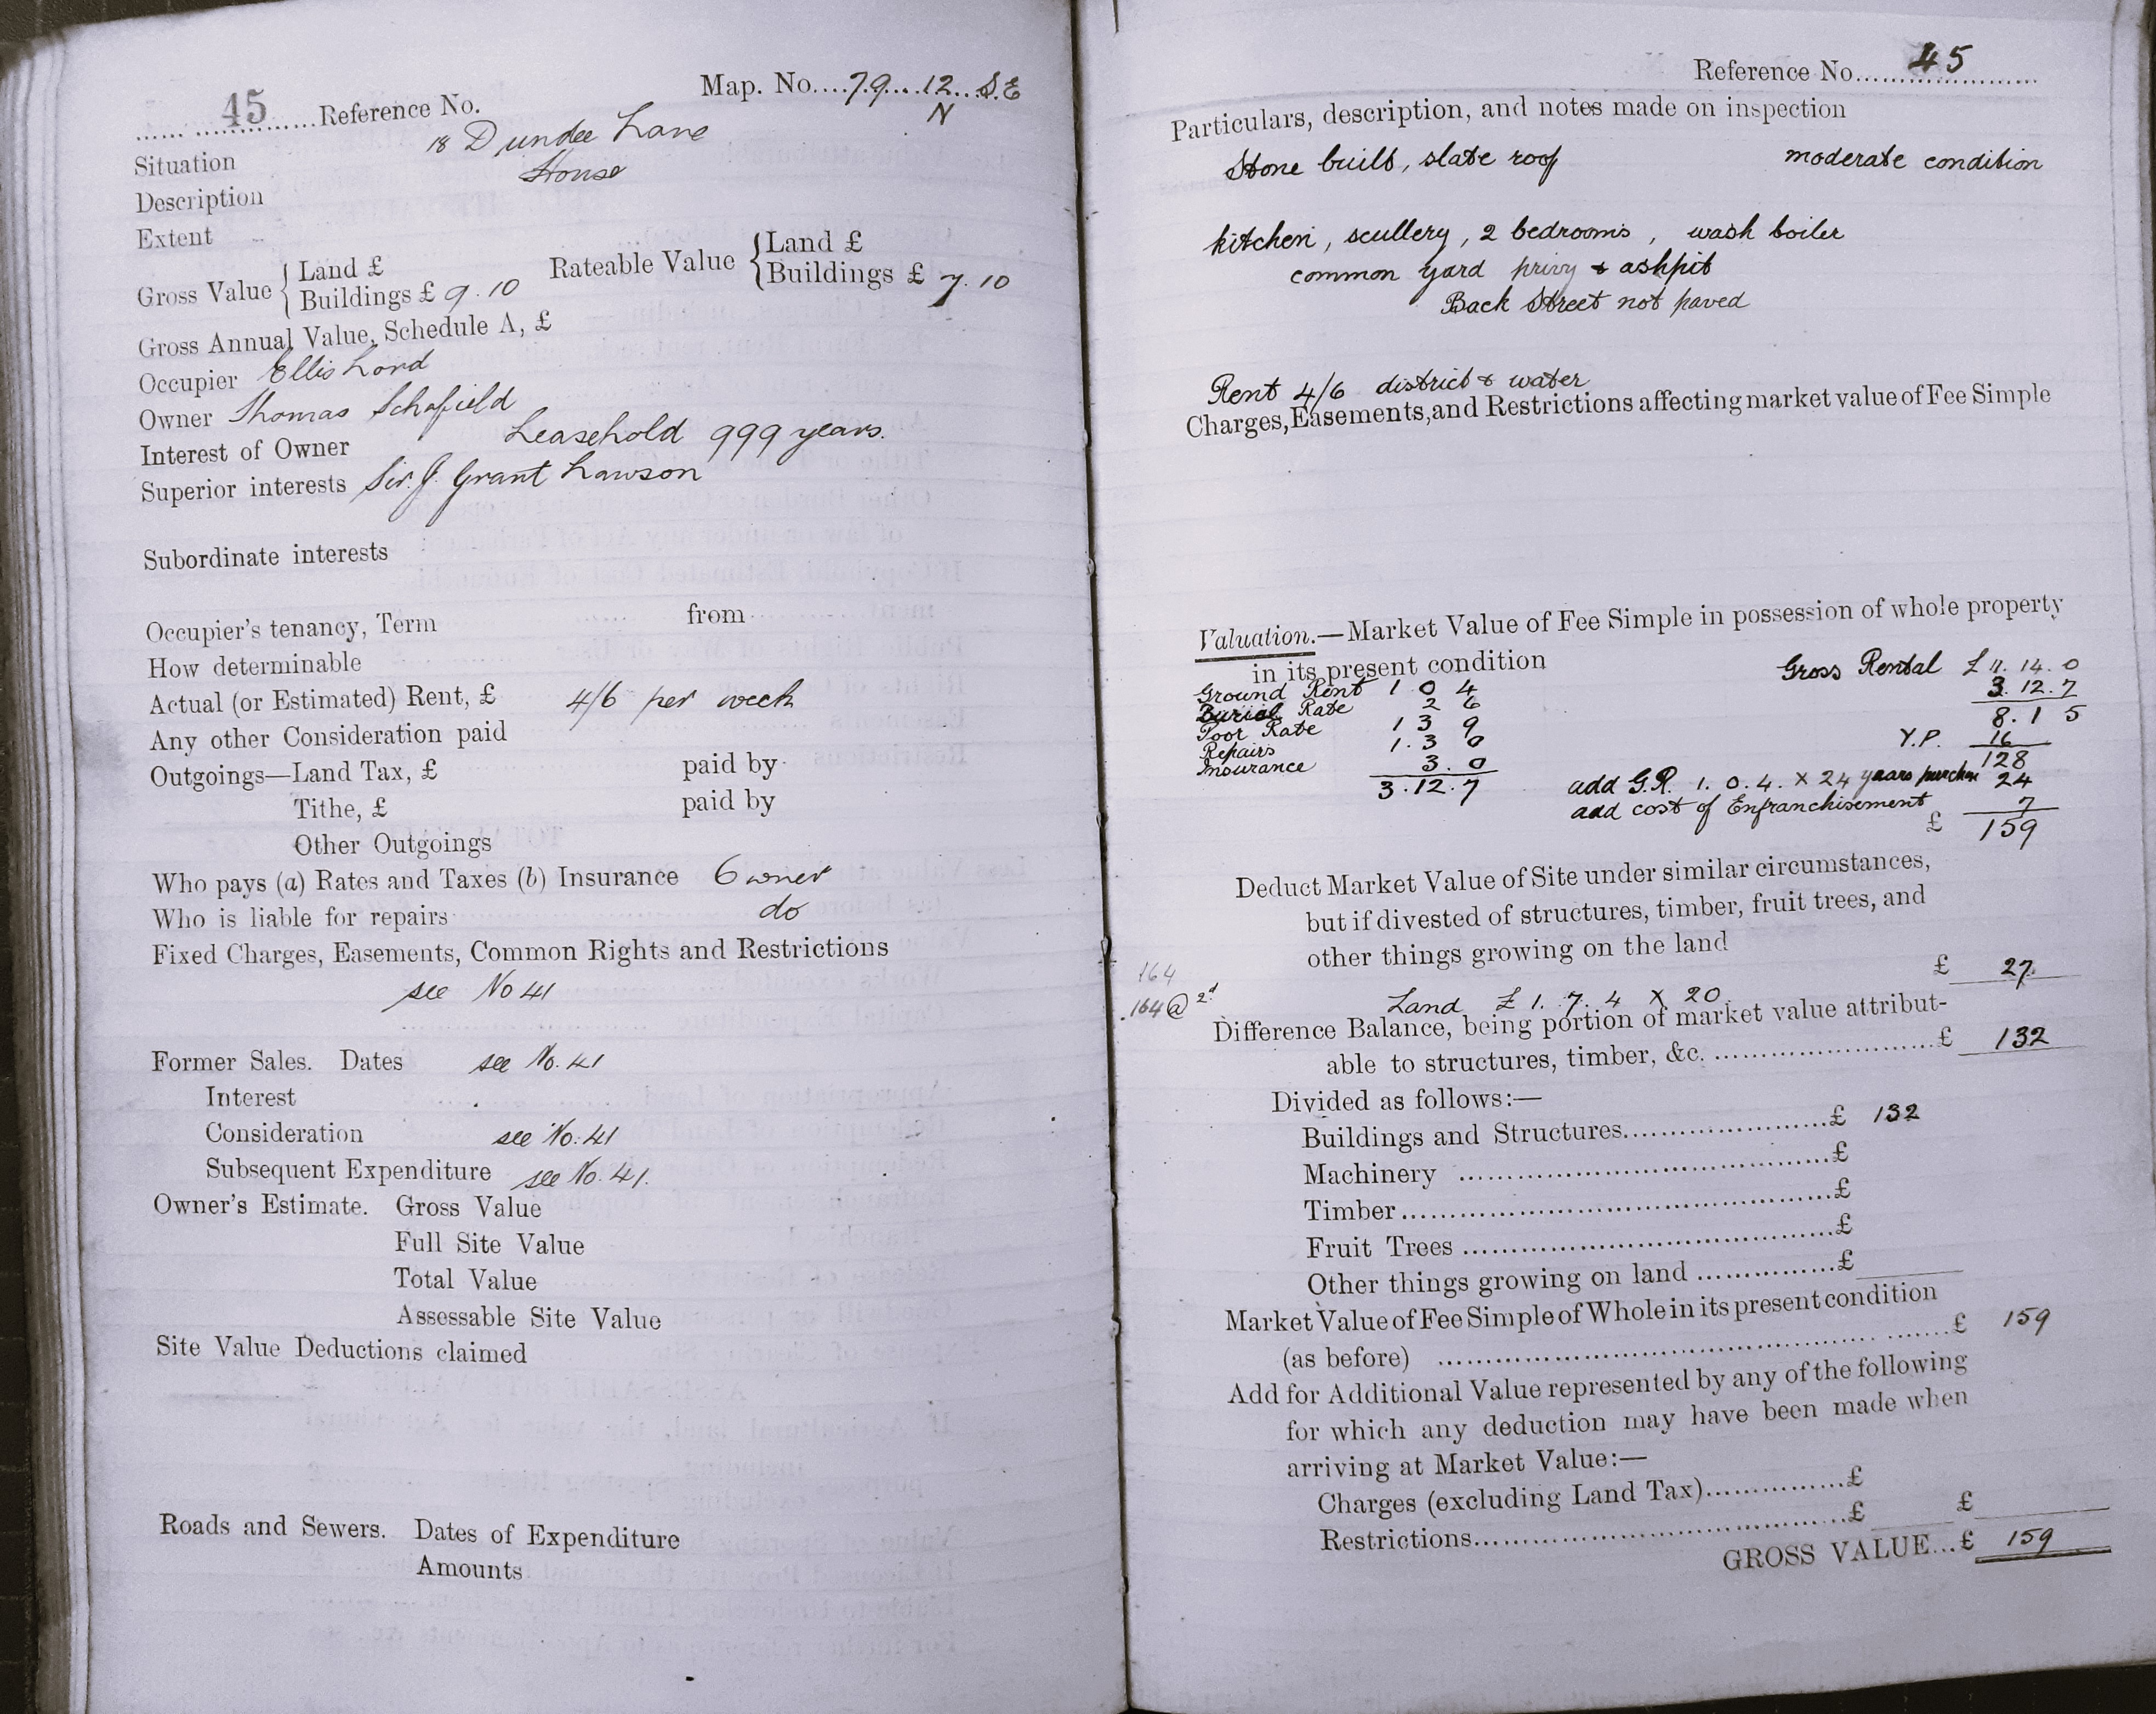 45 Reference No. Map. No. 79 12 S.E
N
Situation 18 Dundee Lane
Description House
Extent
Gross Value { Land £ Rateable Value { Land £
Buildings £ 9.10 Buildings £ 7.10
Gross Annual Value, Schedule A, £
Occupier Ellis Lord
Owner Thomas Schofield
Interest of Owner Leasehold 999 years.
Superior interests Sir. J. Grant Lawson
Subordinate interests
Occupier's tenancy, Term from
How determinable
Actual (or Estimated) Rent, £ 4/6 per week
Any other Consideration paid
Outgoings—Land Tax, £ paid by
Tithe, £ paid by
Other Outgoings
Who pays (a) Rates and Taxes (b) Insurance Owner
Who is liable for repairs do
Fixed Charges, Easements, Common Rights and Restrictions
see No 41
Former Sales. Dates see No. 41
Interest
Consideration see No. 41
Subsequent Expenditure see No. 41.
Owner's Estimate. Gross Value
Full Site Value
Total Value
Assessable Site Value
Site Value Deductions claimed
Roads and Sewers. Dates of Expenditure
Amounts
Reference No. 45
Particulars, description, and notes made on inspection
Stone built, slate roof moderate condition
kitchen, scullery, 2 bedrooms, wash boiler
common yard privy & ashpit
Back Street not paved
Rent 4/6 district & water
Charges, Easements, and Restrictions affecting market value of Fee Simple
Valuation.—Market Value of Fee Simple in possession of whole property
in its present condition Gross Rental £ 11. 14. 0
Ground Rent 1 0 4 3. 12. 7
Burial Rate 2 6 8. 1 5
Poor Rate 1 3 9
Repairs 1. 3 0 Y.P. 16
Insurance 3. 0 128
3. 12. 7 add G.R. 1. 0. 4. X 24 years purchase 24
add cost of Enfranchisement 7
£ 159
Deduct Market Value of Site under similar circumstances,
but if divested of structures, timber, fruit trees, and
other things growing on the land
£ 27
164
164 @ 2d Land £ 1. 7. 4 X 20
Difference Balance, being portion of market value attribut-
able to structures, timber, &c. £ 132
Divided as follows:—
Buildings and Structures £ 132
Machinery £
Timber £
Fruit Trees £
Other things growing on land £
Market Value of Fee Simple of Whole in its present condition
(as before) £ 159
Add for Additional Value represented by any of the following
for which any deduction may have been made when
arriving at Market Value:—
Charges (excluding Land Tax) £
Restrictions £ £
GROSS VALUE... £ 159